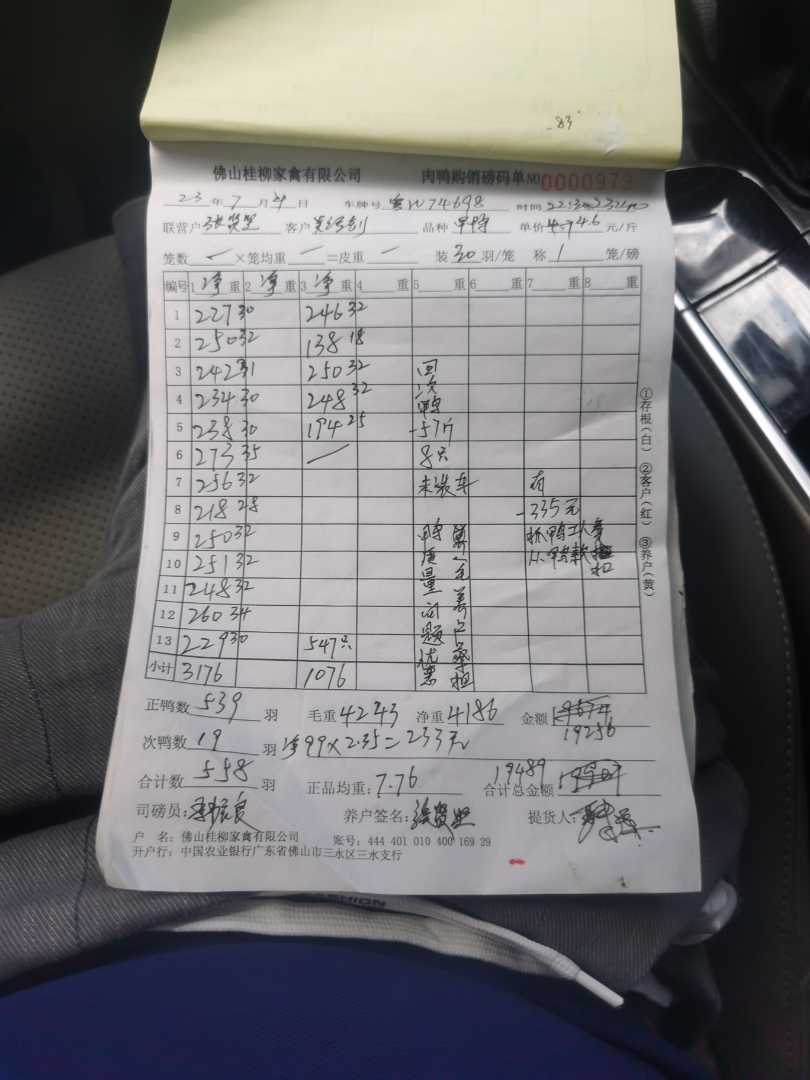 -83
佛山桂柳家禽有限公司 肉鸭购销磅码单 NO 0000973
23年7月 日 车牌号 W74698 时间
联营户 客户 品种 单价 4.6 元/斤
笼数 — ×笼均重 — =皮重 — 装 30 羽/笼 称 1 笼/磅
编号 1 净 重 2 净 重 3 净 重 4 重 5 重 6 重 7 重 8 重
1 227 30 246 32
2 250 32 138 18
3 242 31 250 32 回
4 234 30 248 32 次 鸭
5 238 30 194 25 -57斤
6 273 35 — 8只
7 256 32 未装车 有
8 218 28 -335元
9 250 32 抓鸭工人
10 251 32 从鸭款
11 248 32
12 260 34
13 229 30 547只
小计 3176 1076
鸭质量问题
正鸭数 539 羽 毛重 4243 净重 4186 金额
19256
次鸭数 19 羽 净99×2.35=233元
合计数 558 羽 正品均重: 7.76 合计总金额 19489
司磅员: 养户签名: 提货人:
户 名: 佛山桂柳家禽有限公司 账号: 444 401 010 400 169 29
开户行: 中国农业银行广东省佛山市三水区三水支行
①存根(白) ②客户(红) ③养户(黄)